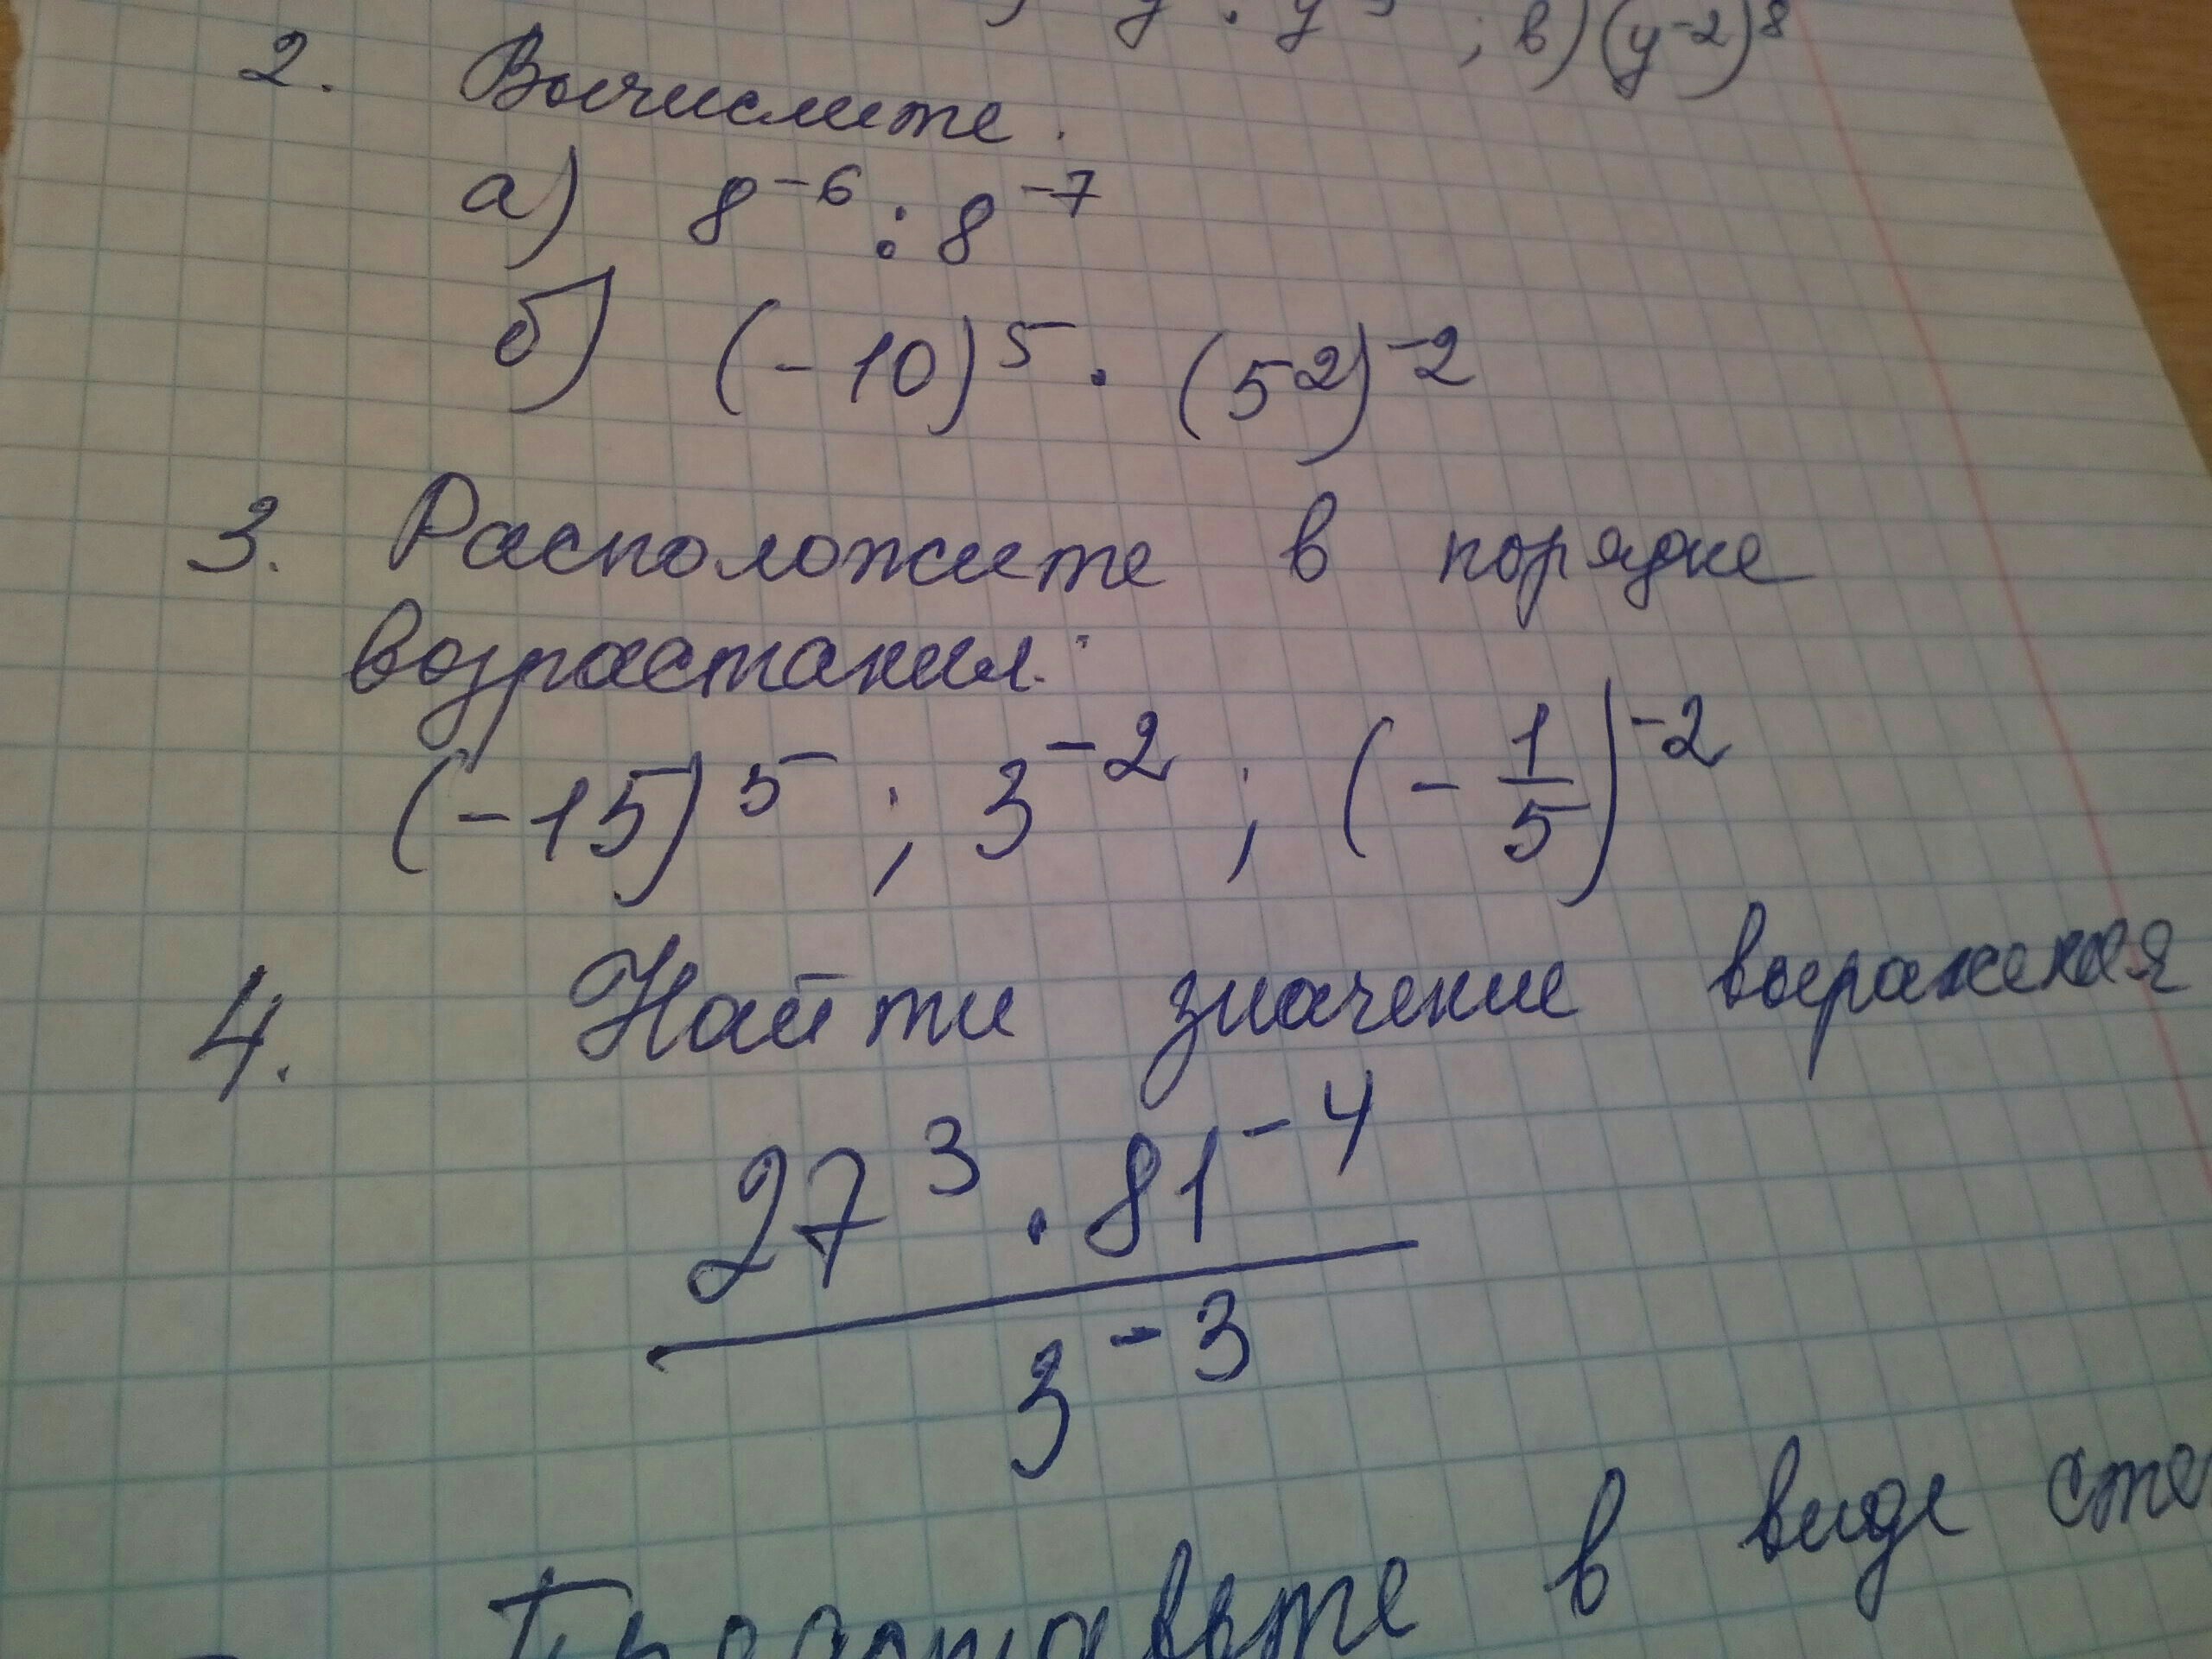 ; в) (y⁻²)⁸
2. Вычислите.
а) 8⁻⁶ : 8⁻⁷
б) (-10)⁵ · (5²)⁻²
3. Расположите в порядке
возрастания:
(-15)⁵ ; 3⁻² ; (-1/5)⁻²
4. Найти значение выражения
27³ · 81⁻⁴
3⁻³
в виде